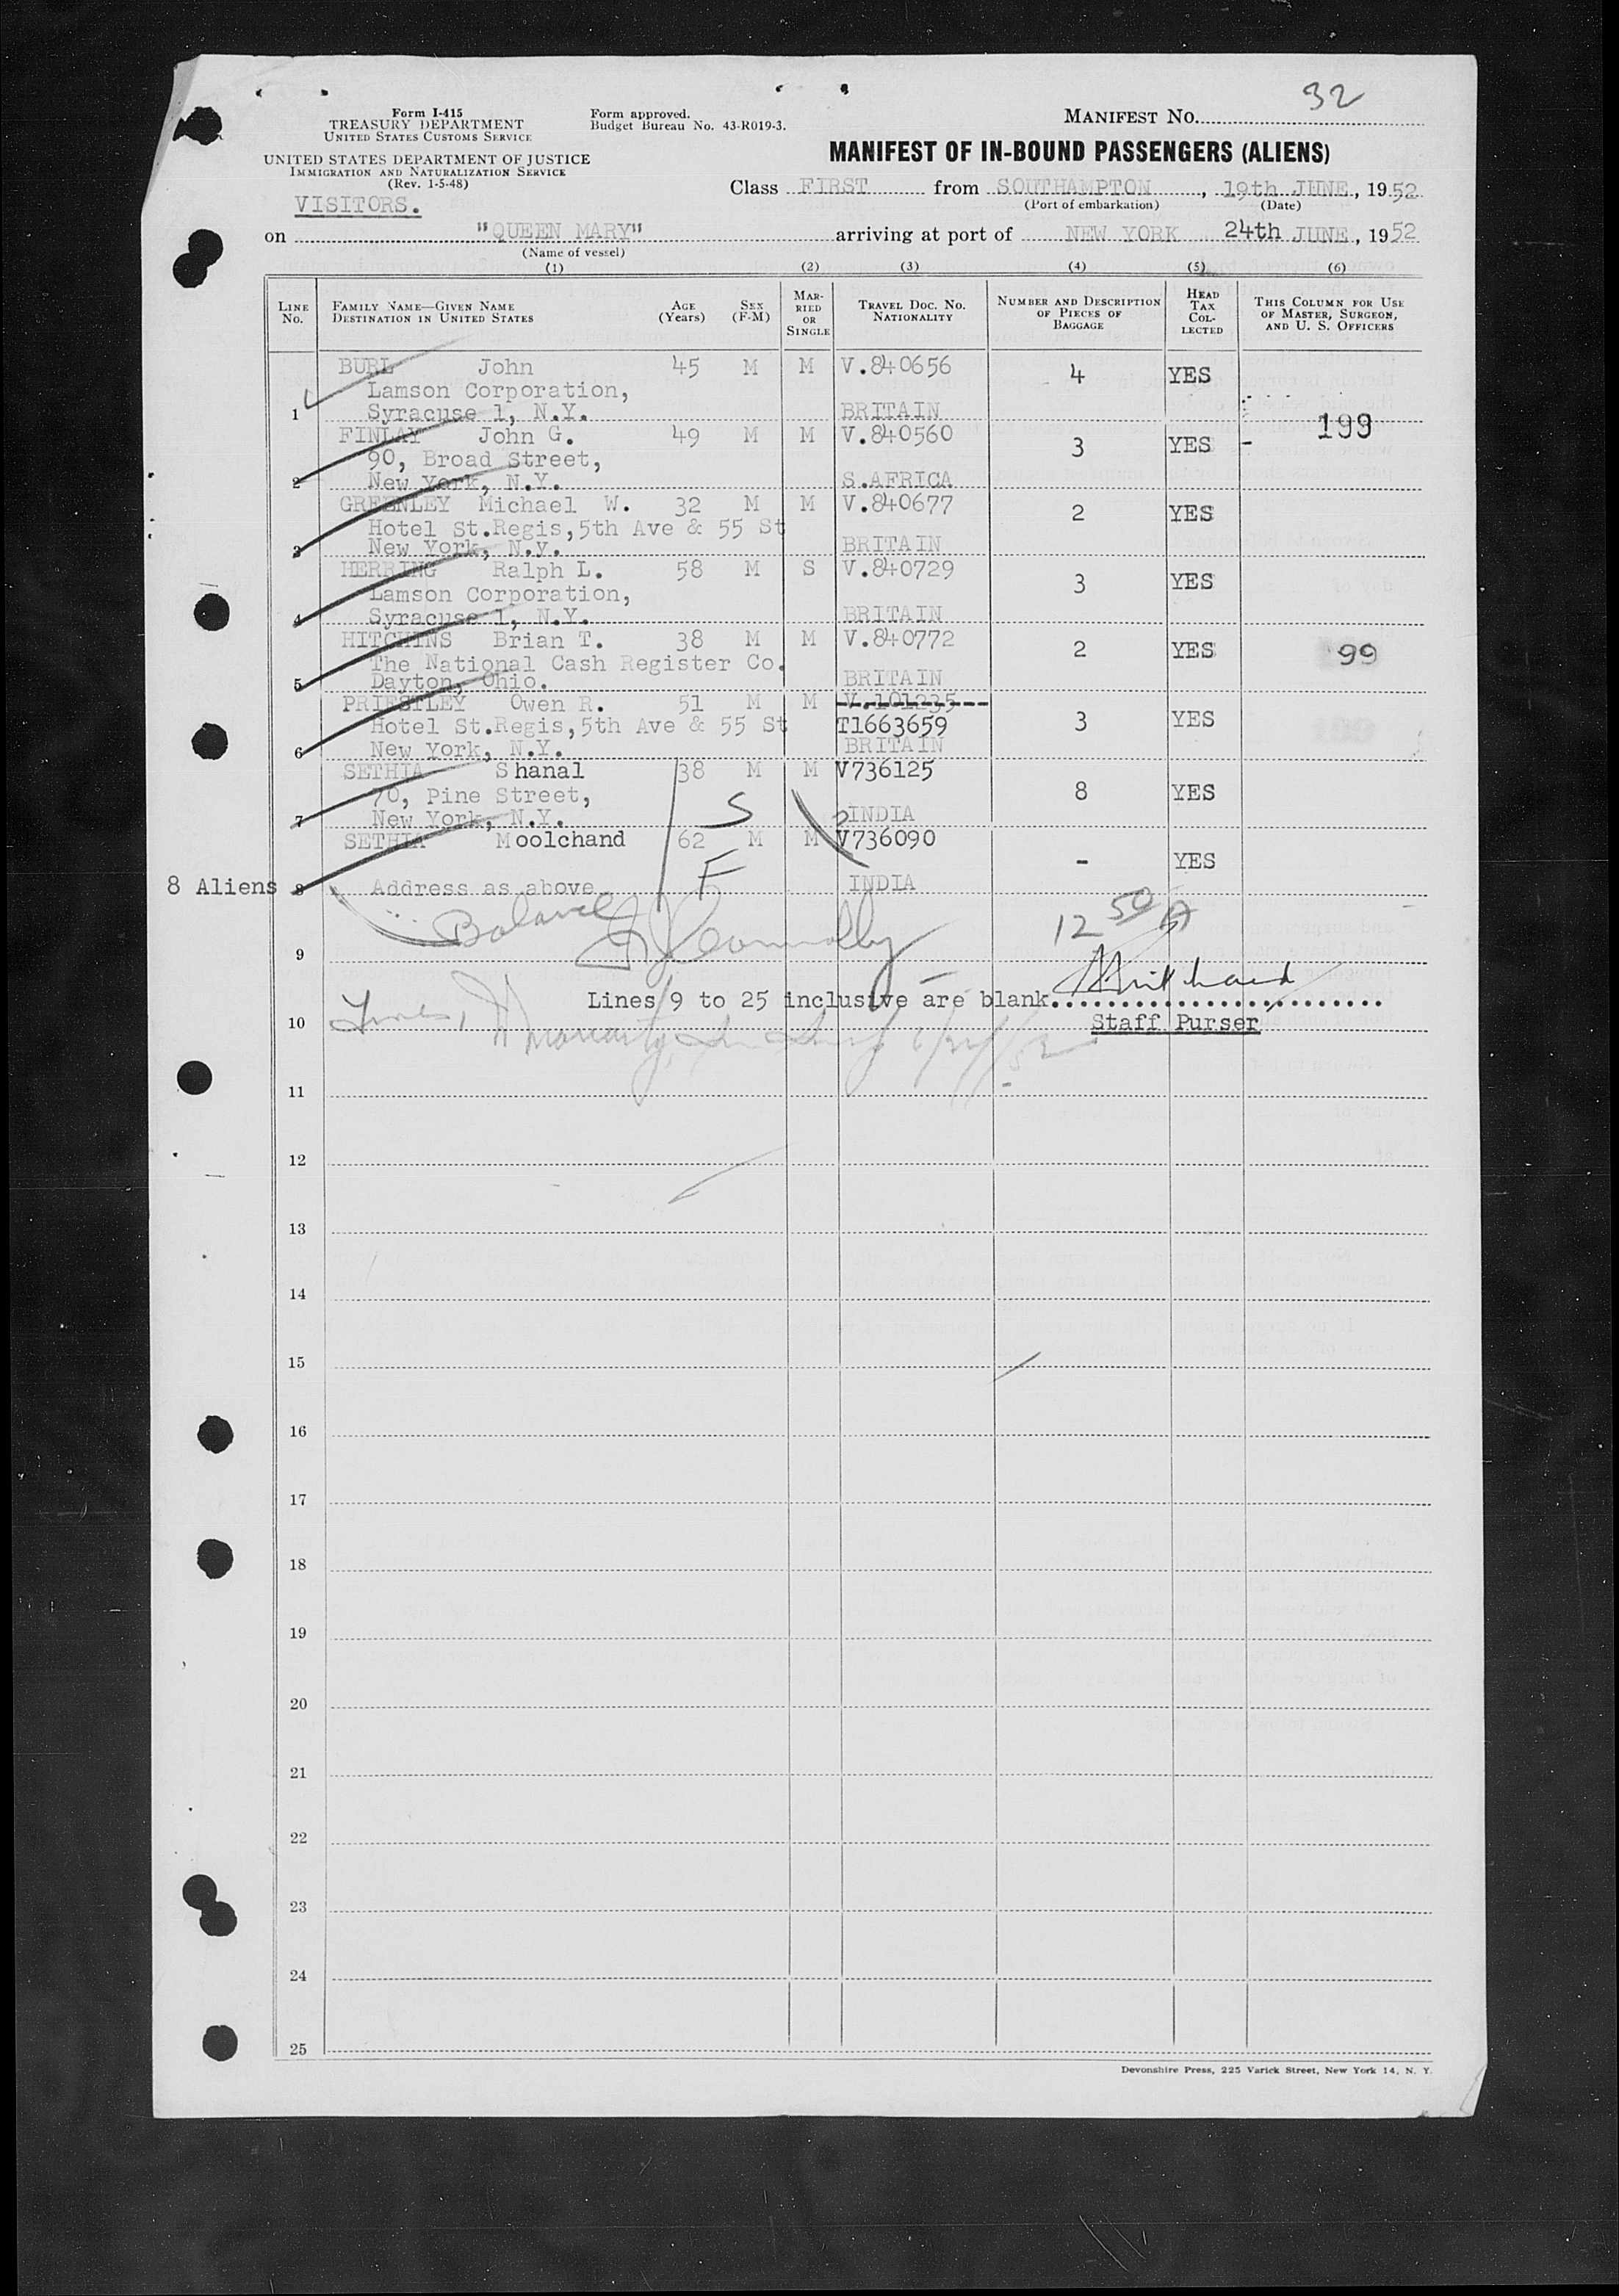 32
Form I-415
TREASURY DEPARTMENT
UNITED STATES CUSTOMS SERVICE
Form approved.
Budget Bureau No. 43-R019-3.
MANIFEST No.
UNITED STATES DEPARTMENT OF JUSTICE
IMMIGRATION AND NATURALIZATION SERVICE
(Rev. 1-5-48)
MANIFEST OF IN-BOUND PASSENGERS (ALIENS)
VISITORS.
Class FIRST from SOUTHAMPTON, 19th JUNE, 1952
(Port of embarkation) (Date)
on "QUEEN MARY" arriving at port of NEW YORK 24th JUNE, 1952
(Name of vessel)
(1) (2) (3) (4) (5) (6)
LINE No. FAMILY NAME—GIVEN NAME DESTINATION IN UNITED STATES AGE (Years) SEX (F-M) MARRIED OR SINGLE TRAVEL DOC. NO. NATIONALITY NUMBER AND DESCRIPTION OF PIECES OF BAGGAGE HEAD TAX COLLECTED THIS COLUMN FOR USE OF MASTER, SURGEON, AND U. S. OFFICERS
BURL John 45 M M V.840656 4 YES
Lamson Corporation,
1 Syracuse 1, N.Y. BRITAIN
199
FINLAY John G. 49 M M V.840560 3 YES -
90, Broad Street,
2 New York, N.Y. S.AFRICA
GREENLEY Michael W. 32 M M V.840677 2 YES
Hotel St.Regis,5th Ave & 55 St
3 New York, N.Y. BRITAIN
HERRING Ralph L. 58 M S V.840729 3 YES
Lamson Corporation,
4 Syracuse 1, N.Y. BRITAIN
HITCHINS Brian T. 38 M M V.840772 2 YES 99
The National Cash Register Co.
5 Dayton, Ohio. BRITAIN
PRIESTLEY Owen R. 51 M M V.101235
Hotel St.Regis,5th Ave & 55 St T1663659 3 YES
6 New York, N.Y. BRITAIN
SETHIA Shanal 38 M M V736125 8 YES
70, Pine Street, S
7 New York, N.Y. INDIA
SETHIA Moolchand 62 M M V736090 - YES
F
8 Aliens 8 Address as above INDIA
12 50
9
Lines 9 to 25 inclusive are blank
10 Staff Purser
11
12
13
14
15
16
17
18
19
20
21
22
23
24
25
Devonshire Press, 225 Varick Street, New York 14, N. Y.